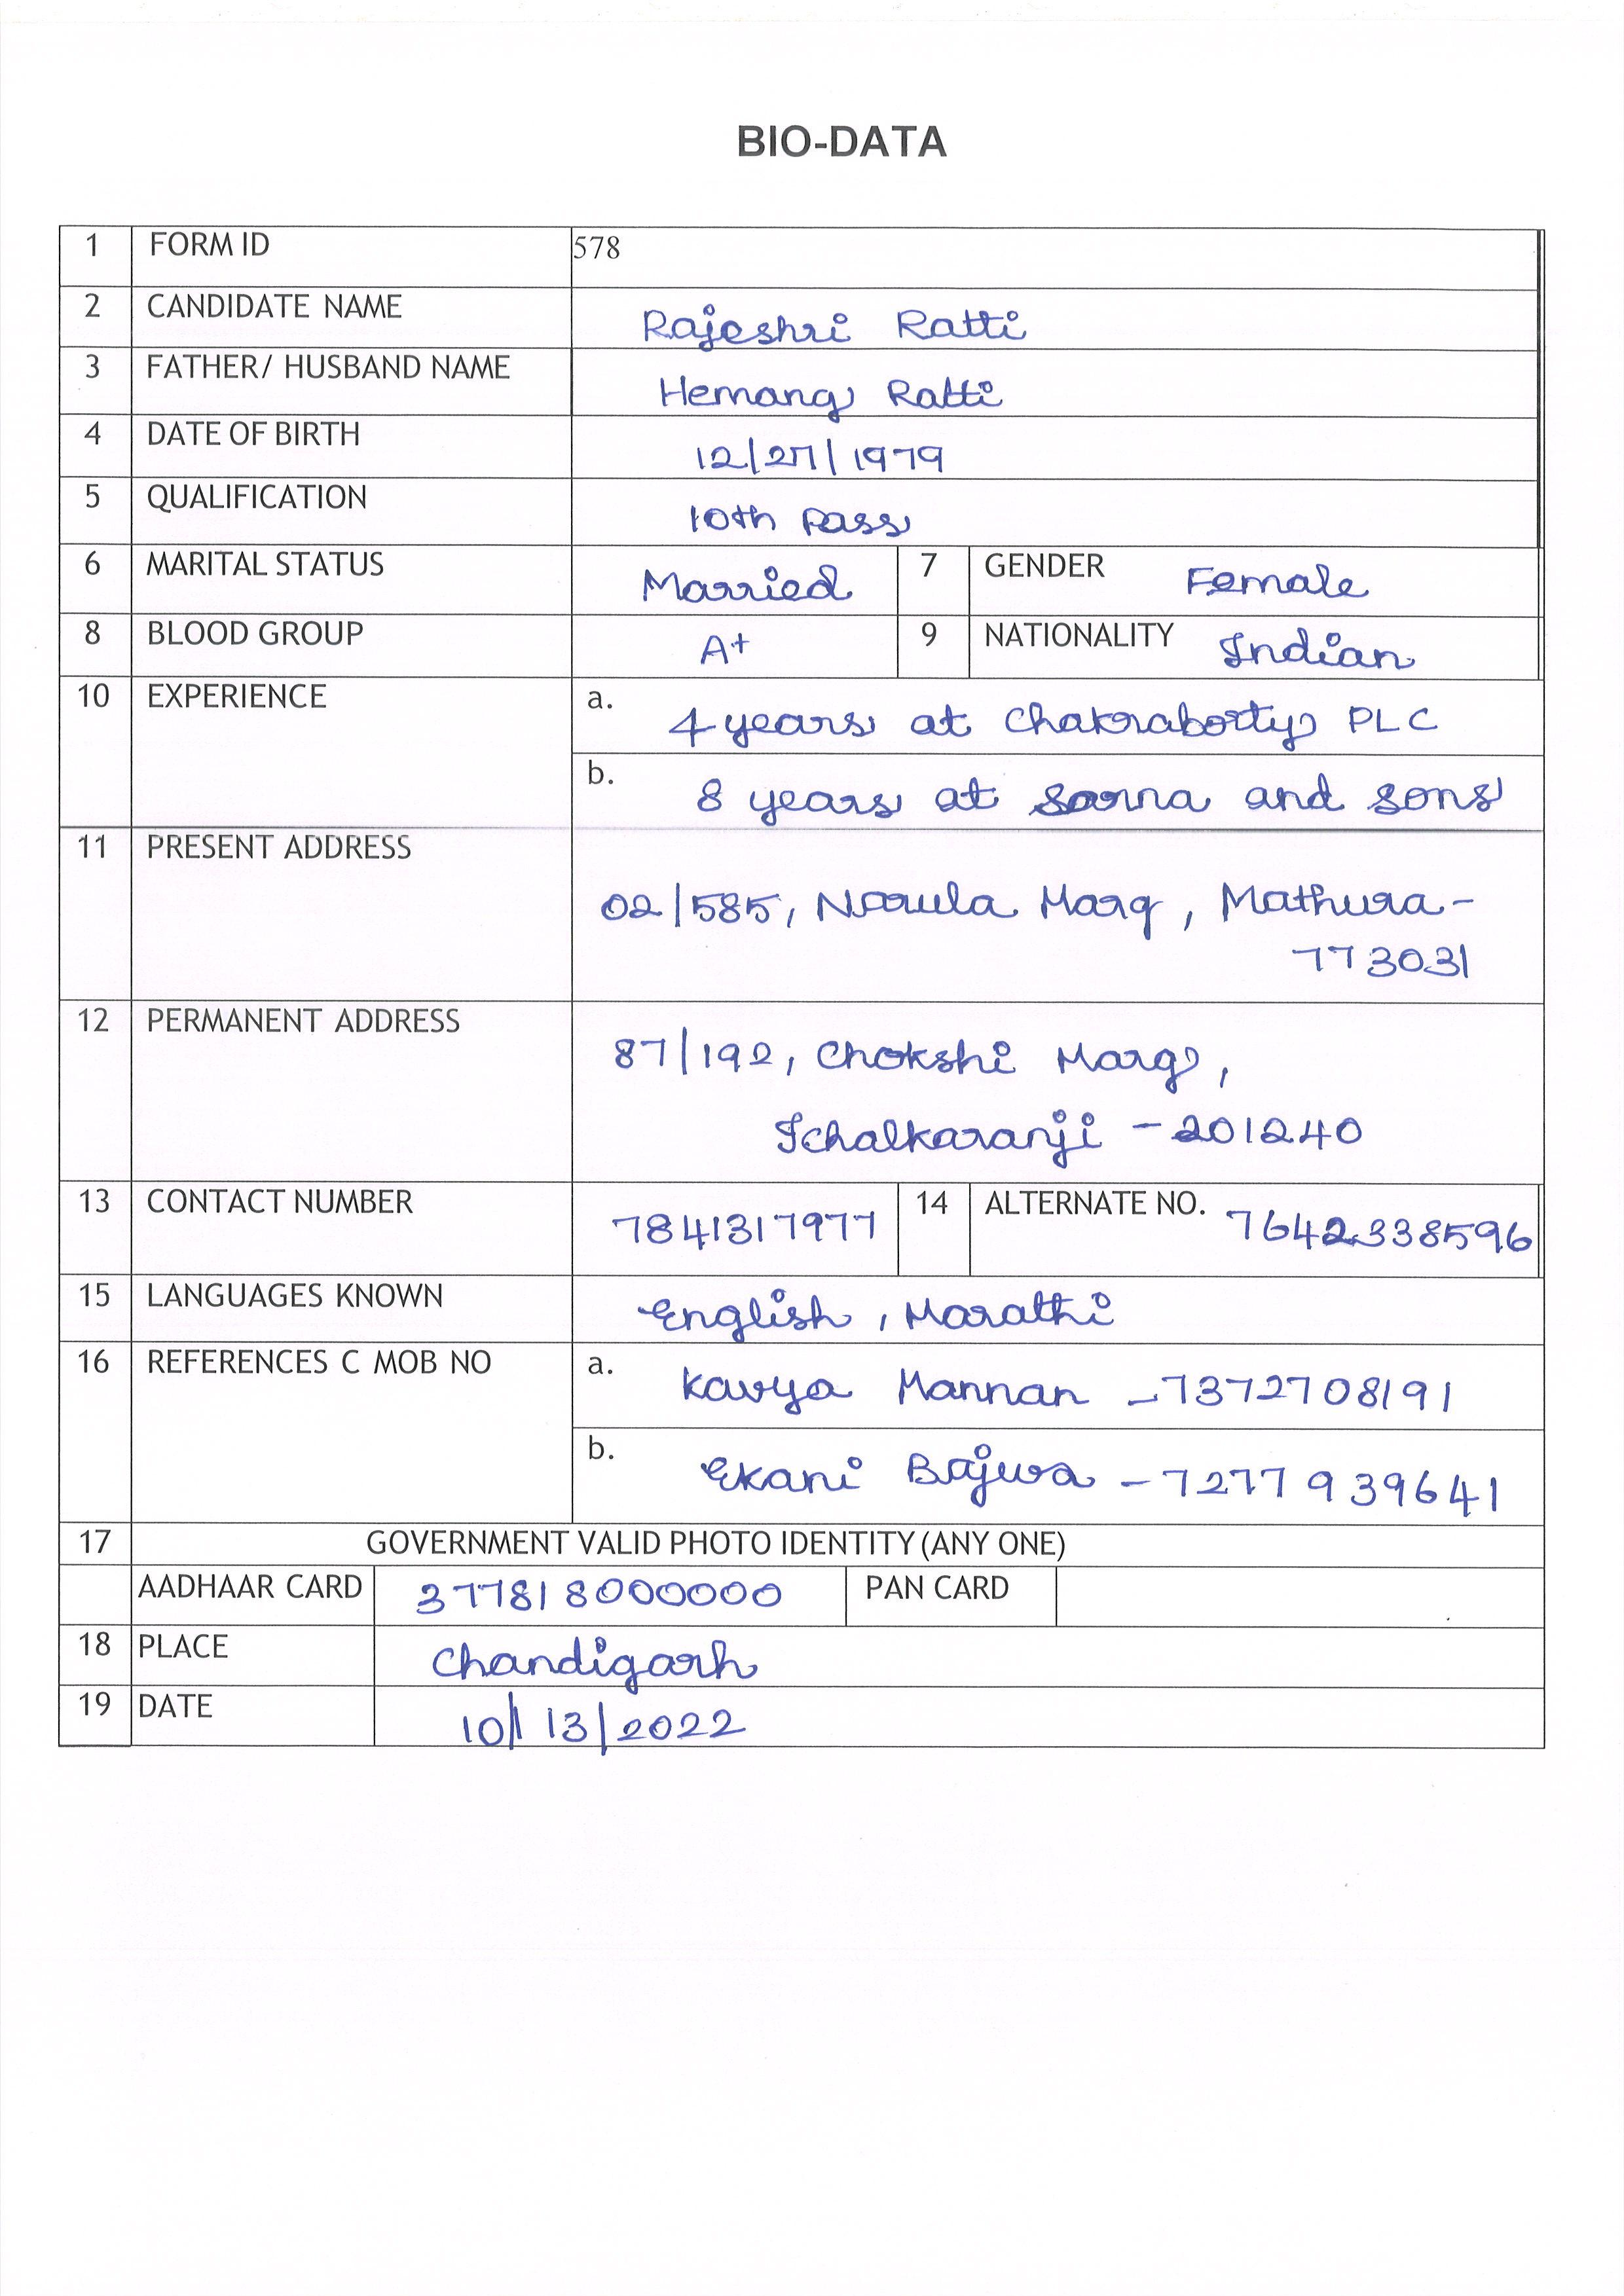 BIO-DATA
1 FORM ID 578
2 CANDIDATE NAME Rajeshri Ratti
3 FATHER/ HUSBAND NAME Hemang Ratti
4 DATE OF BIRTH 12/27/1979
5 QUALIFICATION 10th Pass
6 MARITAL STATUS Married 7 GENDER Female
8 BLOOD GROUP A+ 9 NATIONALITY Indian
10 EXPERIENCE a. 4 years at Chakraborty PLC
b. 8 years at Sarna and Sons
11 PRESENT ADDRESS
02/585, Narula Marg, Mathura-
773031
12 PERMANENT ADDRESS
87/192, Chokshi Marg,
Ichalkaranji - 201240
13 CONTACT NUMBER 7841317977 14 ALTERNATE NO. 76423338596
15 LANGUAGES KNOWN English, Marathi
16 REFERENCES C MOB NO a. Kavya Mannan - 7372708191
b. Ekani Bajwa - 7277939641
17 GOVERNMENT VALID PHOTO IDENTITY (ANY ONE)
AADHAAR CARD 377818000000 PAN CARD
18 PLACE Chandigarh
19 DATE 10/13/2022